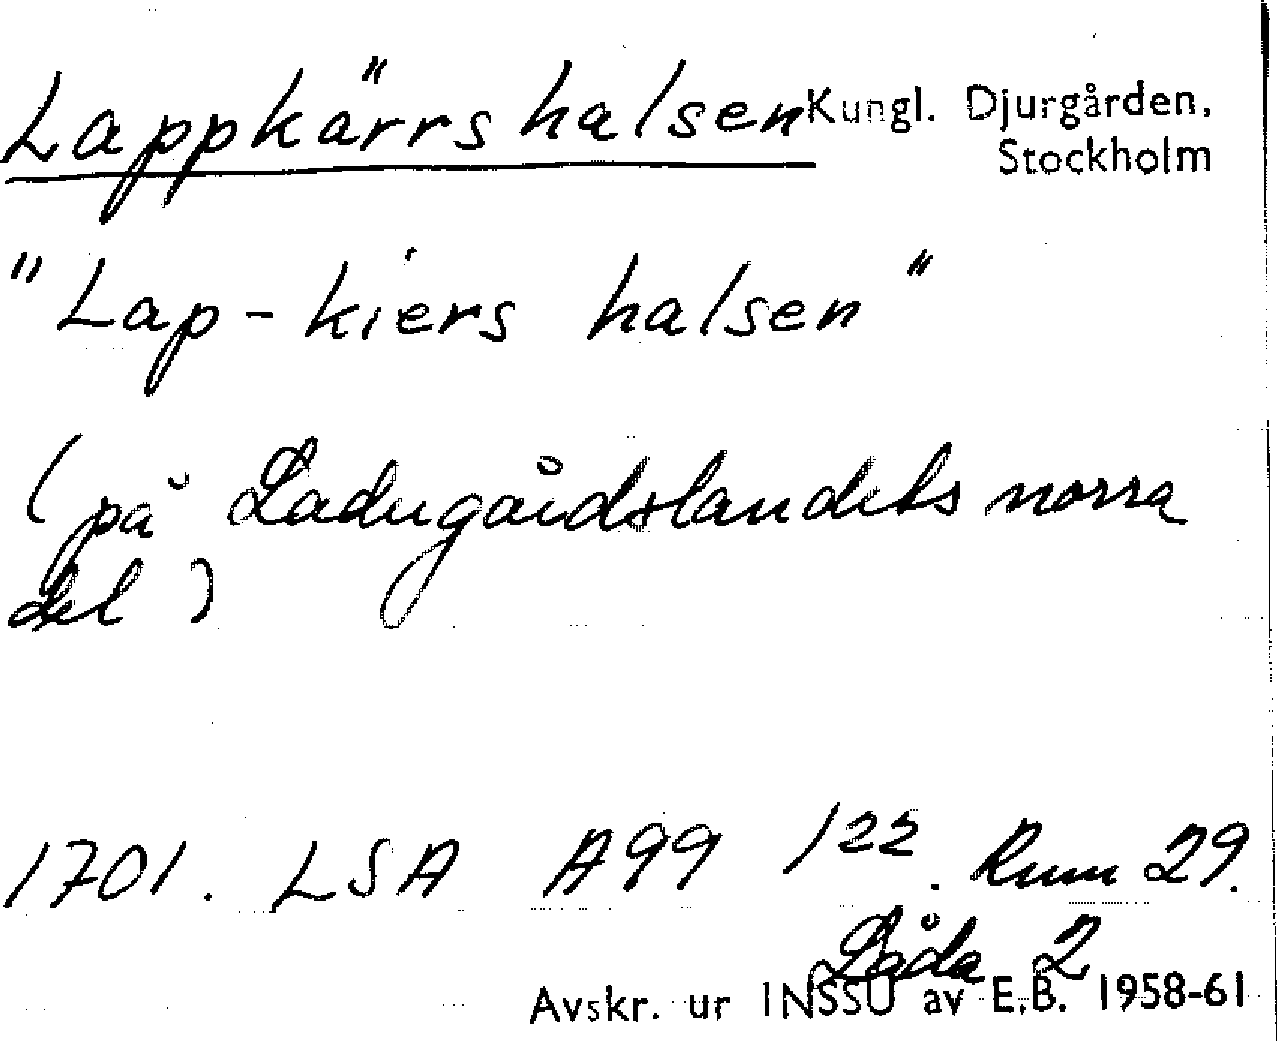 Lappkärrshalsen Kungl. Djurgården,
Stockholm
"Lap-kiers halsen"
(på Ladugårdslandets norra
del)
1701. LSA A99 122. Rum 29.
Låda 2
Avskr. ur INSSU av E.B. 1958-61